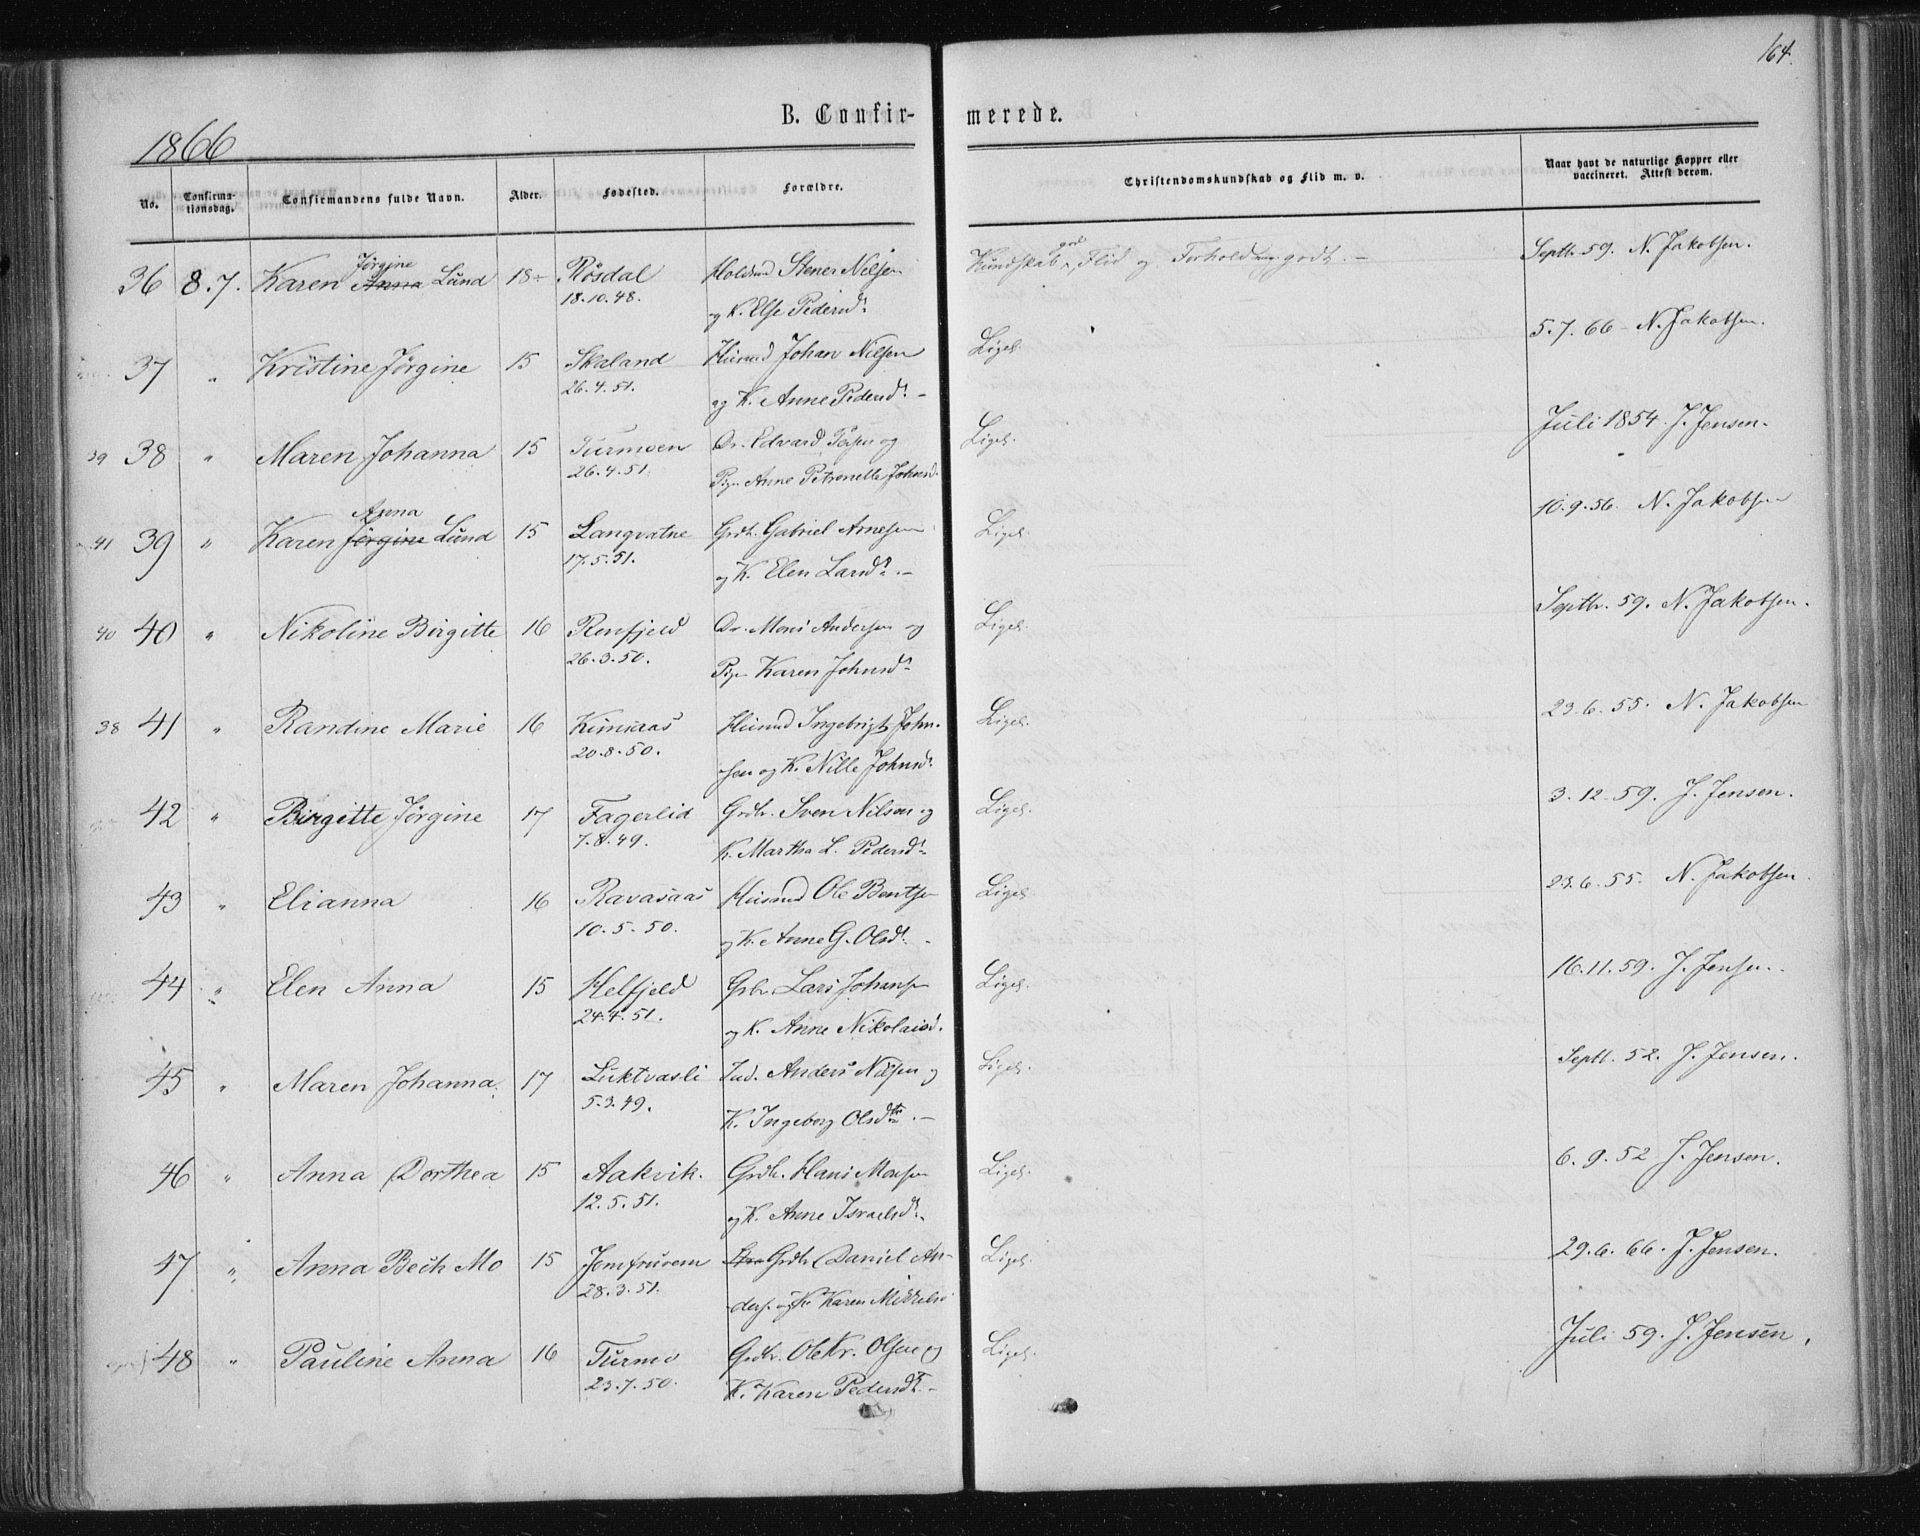 164.
B. Confirmerede.
1866
No. Confirmationsdag. Confirmandens fulde Navn. Alder. Fødested. Forældre. Christendomskundskab og Flid m. v. Naar havt de naturlige Kopper eller vaccineret. Attest derom.
Jörgine god
36 8.7. Karen Anna Lund 18 Røsdal Stener Nielsen Kundskab, Flid og Forhold godt. — Septb. 59. N. Jakobsen.
18.10.48. og K. Else Pedersd.
37 " Kristine Jörgine 15 Skaland Husmd Johan Nilsen Ligel. 5.7.66 - N. Jakobsen.
26.4.51. og K. Anne Pedersd. -
39 38 " Maren Johanna 15 Turmoen Dr. Edvard og Ligel. Juli 1854. J. Jensen.
26.4.51. Pige Anne Petronelle Johnsd.
Anna
41 39 " Karen Jörgine Lund 15 Langvatne Grdb. Gabriel Arnesen Ligel. 10.9.56. N. Jakobsen
17.5.51. og K. Elen Larsd. -
40 40 " Nikoline Birgitte 16 Renfjeld Dr. Mons Andersen og Ligel. Septbr. 59. N. Jakobsen.
26.3.50. Pige Karen Johnsd.
38 41 " Randine Marie 16 Husmd Ingebrigt John- Ligel. 23.6.55. N. Jakobsen
20.8.50. sen og K. Nille Johnsd.
42 " Birgitte Jörgine 17 Fagerlid Grdbr. Sven Nilsen og Ligel. 3.12.59. J. Jensen.
7.8.49. K. Martha L. Pedersd.
43 " Elianna 16 Ravasaas Husmd Ole Bentsen Ligel. 23.6.55. N. Jakobsen.
10.5.50. og K. Anne G. Olsd. -
44 " Elen Anna 15 Helfjeld Grbr. Lars Johansen Ligel. 16.11.59. J. Jensen.
24.4.51. og K. Anne Nikolaisd.
45 " Maren Johanna. 17 Luktvasli Ind. Anders og Ligel. Septb. 52. J. Jensen.
5.3.49. K. Ingeborg Olsdtr. -
46 " Anna Dorthea 15 Aakvik. Grdb. Hans Monsen Ligel. 6.9.52 J. Jensen.
12.5.51. og K. Anne Israelsd.
47 " Anna Bech Mo 15 Grdbr Daniel An- Ligel. 29.6.66. J. Jensen.
28.3.51. ders. og K. Karen Mikkelsd
48 " Pauline Anna 16 Turmo Grdbr. Ole Kr. Olsen og Ligel. Juli 59. J. Jensen.
23.7.50. K. Karen Pedersd. -